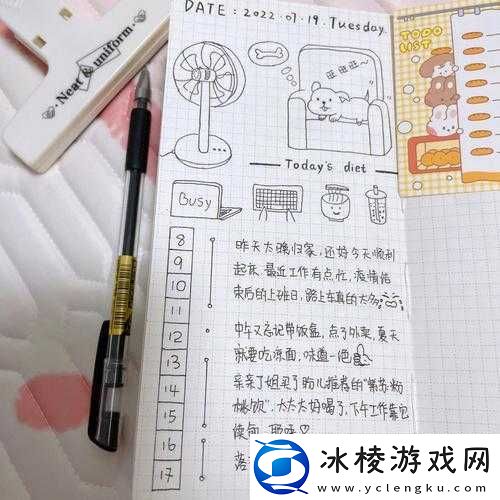 Neat & uniform
DATE : 2022 . 07 . 19 . Tuesday.
TODO
LIST
旺~旺~
Today's diet
Busy
8
9
10
11
12
13
14
15
16
17
昨天太晚归家，还好今天顺利
起床，最近工作有点忙，疫情结
束后的上班日，路上车真的太多
中午又忘记带饭盒，点了外卖，夏天
就要吃凉面，味道一绝
亲亲丁姐买了
推荐的"紫苏粉
桃饮"，太太太好喝了，下午工作
冰棱游戏网
www.gkbql.com